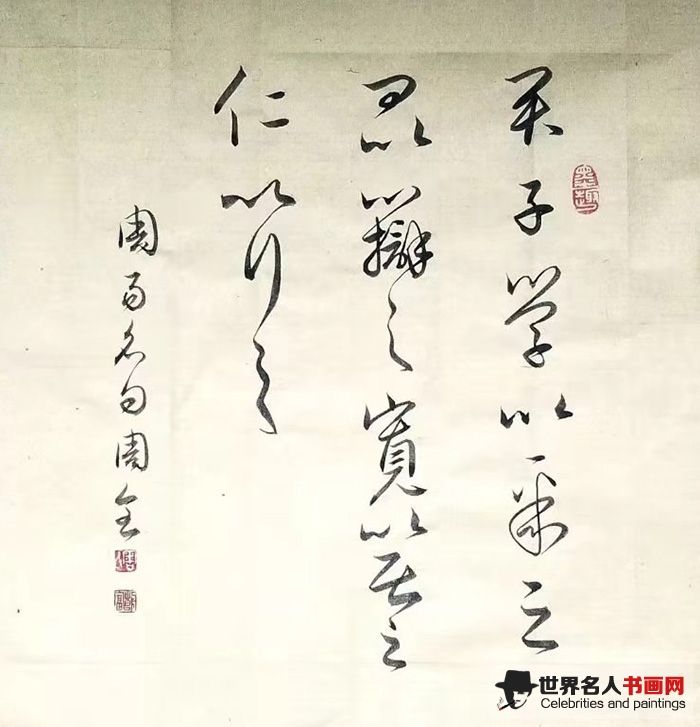 君子学以聚之
问以辯之寬以居之
仁以行之
周易名句周全
墨趣
世界名人书画网
Celebrities and paintings